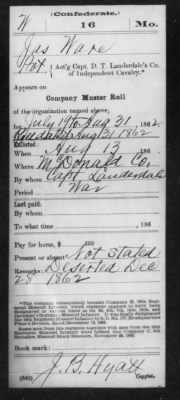 (Confederate.)
W 16 Mo.
Jas Ware
Pvt., Act'g Capt. D. T. Lauderdale's Co. of Independent Cavalry.*
Appears on
Company Muster Roll
of the organization named above,
for July 19 to Aug 31, 1862.
Aug 31 1862
Enlisted:
When Aug 13, 186
Where McDonald Co.
By whom Capt. Lauderdale
Period War
Last paid:
By whom
To what time , 186
Pay for horse, $ 100
Present or absent Not Stated
Remarks: Deserted Dec
28 1862
Book mark:
J. B. Hyatt
(642) Copyist.